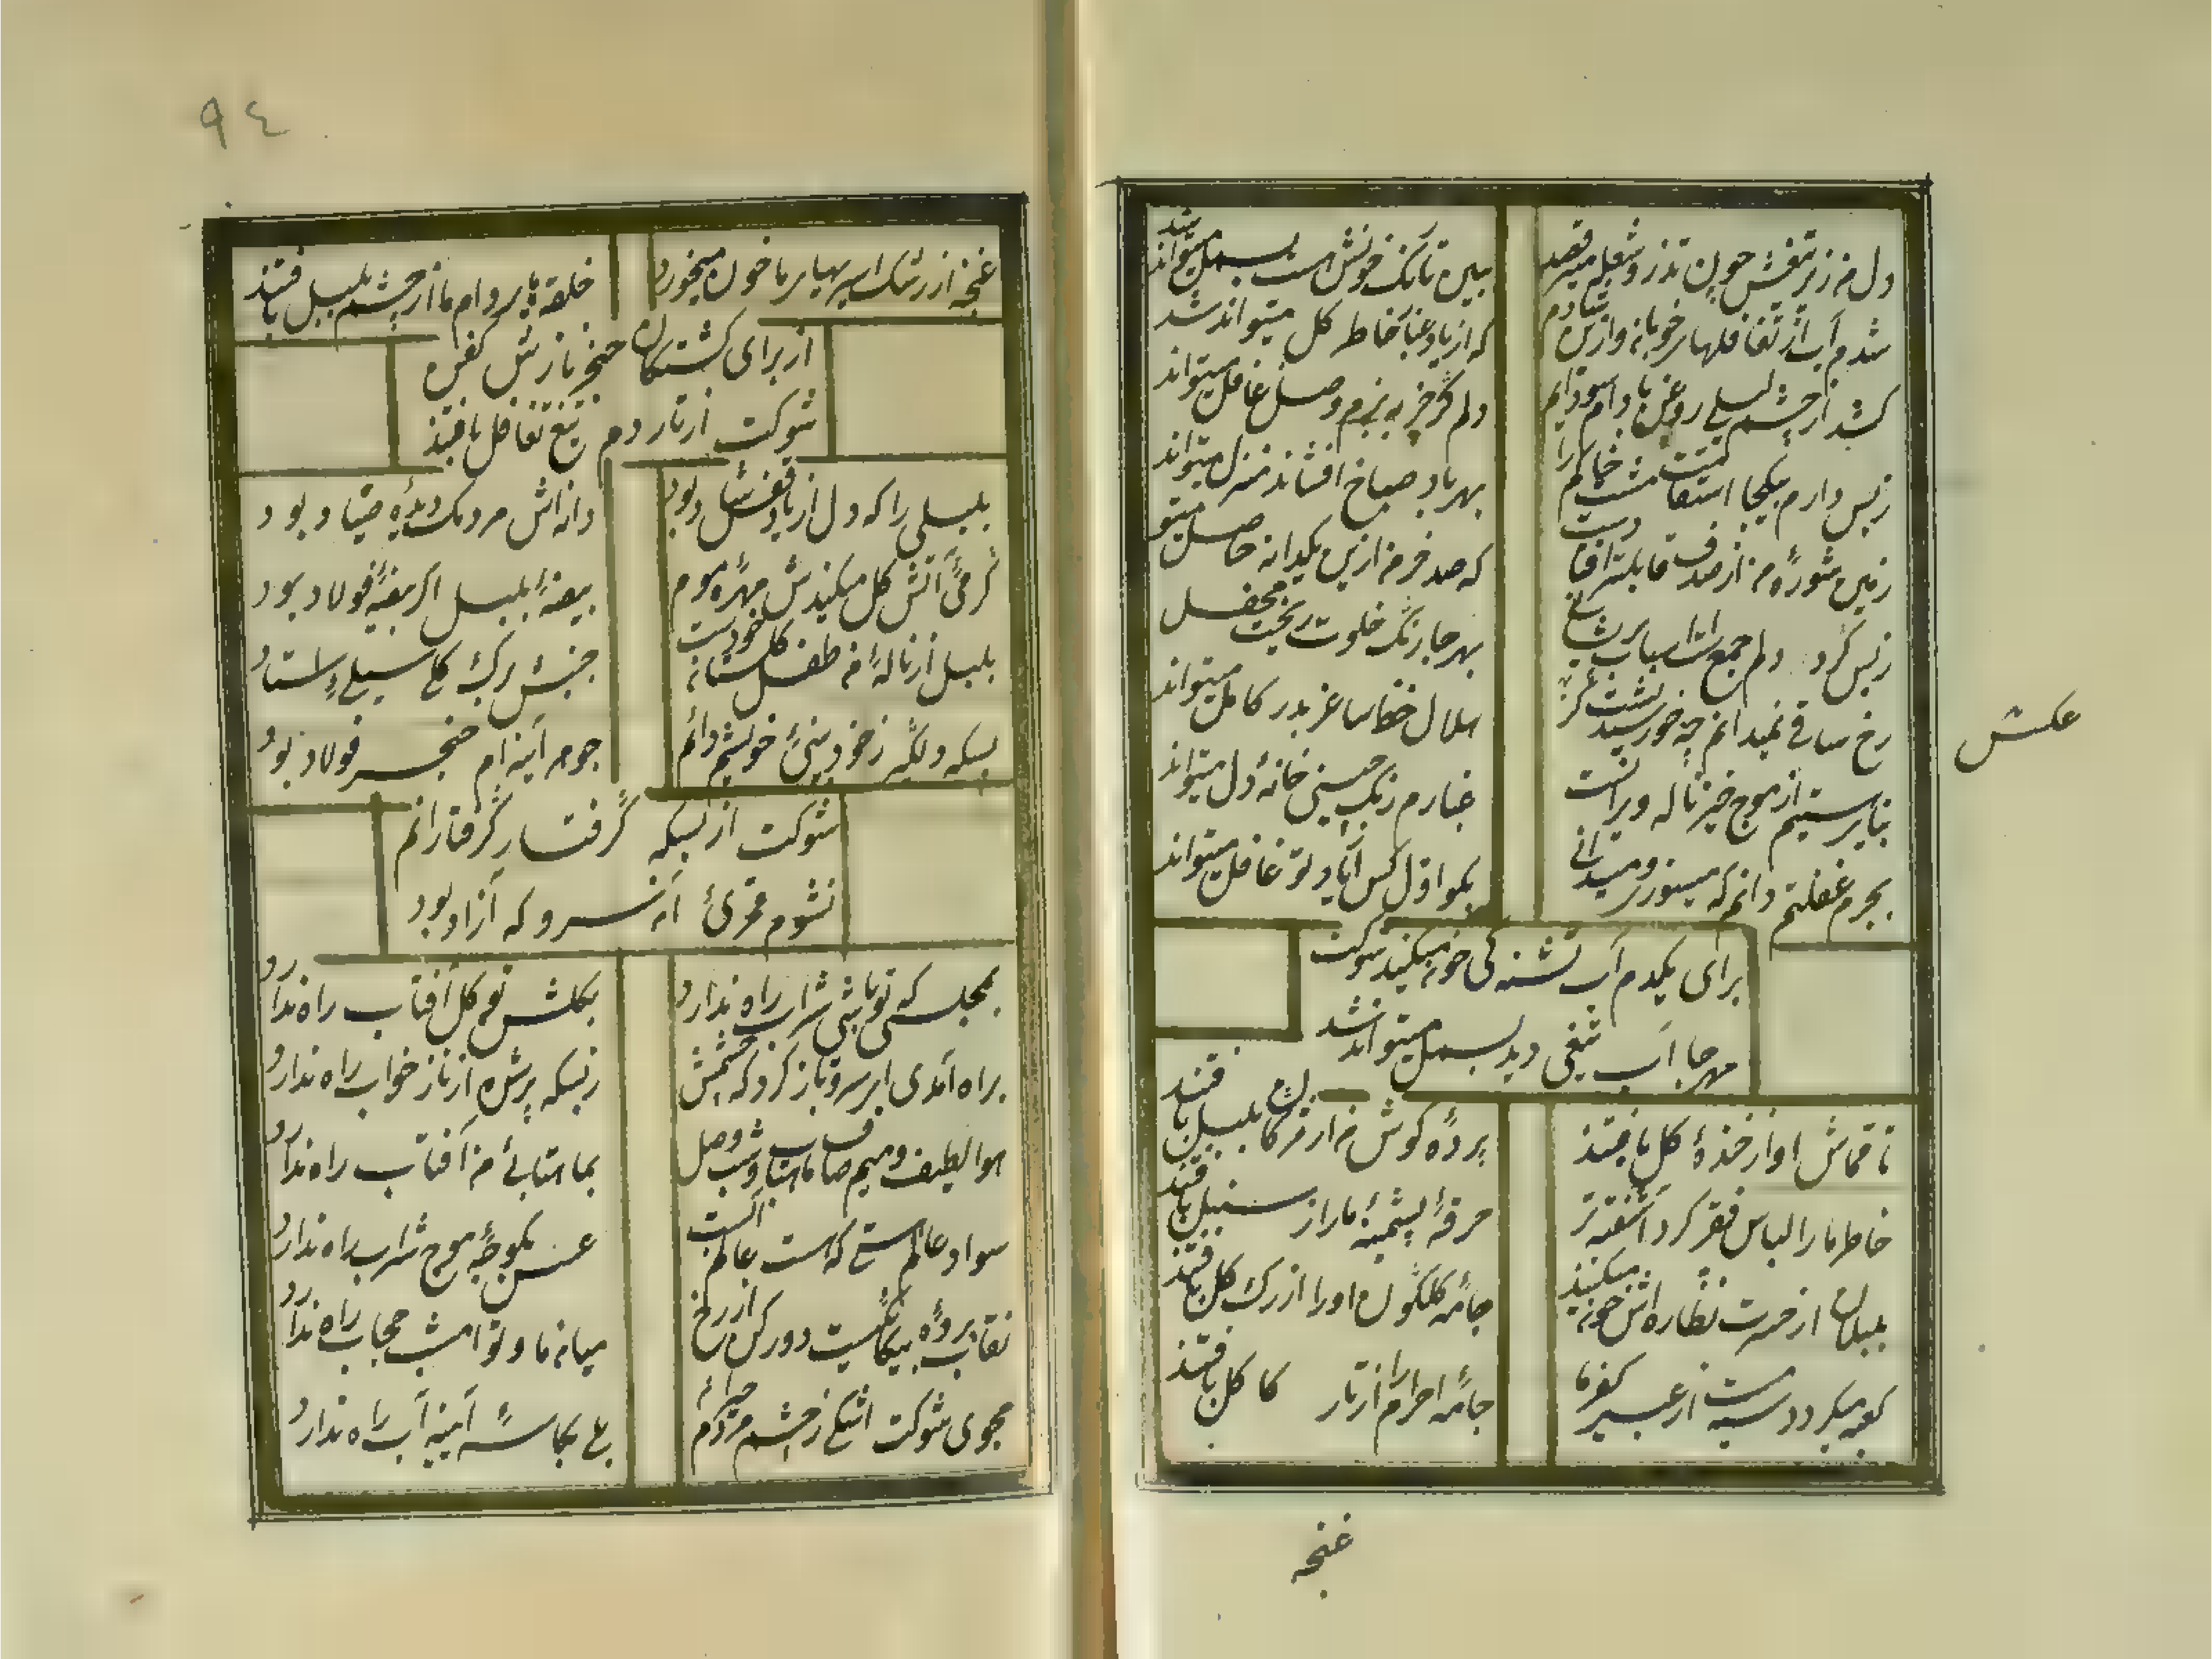 دل من زیر تیغش چون تذرو شعله میرقصد
ببین تا رنگ خونش هست بسمل میتواند شد
شدم آب از تغافلهای خوبان
که از یاد عتاب خاطر گل میتواند شد
کشد از چشم لیلی روغن بادام سودایم
دلم گر جز به بزم وصل غافل میتواند
ز بس دارم بیکجا استقامت مشت خاکم را
بهر باد صبا خ افشاند منزل میتواند
زمین شوره من از صدف قابلتر افتا دست
که صد خرمن ازین یکدانه حاصل میتو
ز بس گردد دلم جمع
بهر جا رنگ خلوت ریخت محفل
رخ ساقی نمیدانم چه خورشیدست
هلال خط ساغر بدر کامل میتواند
عکسش
بنای هستیم از موج خیز ناله ویرانست
غبارم رنگ چینی خانهٔ دل میتواند
بجرم غفلتم دانم که میسوزی و میدانی
بگو اول کس از یاد تو غافل میتواند
برای یکدم آب تشنه کی خون میکند شوکت
بهر جا آب تیغی دید بسمل میتواند شد
تا قماش او از خندهٔ گل بافتند
پردهٔ گوش من از بلبل بافتند
خاطر ما را لباس فقر کرد آشفته تر
خرقهٔ پشمینهٔ ما را ز سنبل بافتند
بلبلان از حسرت نظاره اش خون میکنند
جامهٔ گلگون او را از رگ گل بافتند
کعبه میگردد سیه مست از عبیر
جامهٔ احرام را از تار کاکل بافتند
غنچه
٩٤
غنچه از رشک اسیریهای ما خون میخورد
حلقه های دام ما از چشم بلبل بافتند
از برای کشتگان خنجر نازش کفن
شوکت از تار دم تیغ تغافل بافتند
بلبلی را که دل از یاد قفس شاد بود
دانه اش مردمک دیدهٔ صیاد بود
گرمی آتش گل میکندش مهرهٔ موم
بیضهٔ بلبل اگر بیضهٔ فولاد بود
بلبل از نالهٔ من طفل گلستان خودست
جنبش برگ گلی سیلی استاد
بسکه دلگیر ز خودبینی خویشم دائم
جوهر آینه ام خنجر فولاد بود
شوکت از بسکه گرفتار گرفتارانم
نشوم قمری آن سرو که آزاد بود
بمجلسی که تو باشی شراب راه ندارد
بگلشن تو گل آفتاب راه ندارد
براه آمدی ای سرو ناز گرد که چشمش
ز بسکه پر شده از ناز خواب راه ندارد
هوا لطیف و میم صاف ماهتاب و شب وصل
بماهتابی من آفتاب راه ندارد
سواد عالم مستی که هست عالم آبست
عسس بکوچهٔ موج شراب راه ندارد
نقاب پردهٔ بیگانگیست دور کن از رخ
میانه ما و تو امشب حجاب راه ندارد
مجوی شوکت اشکی ز چشم مردم حیران
بلی بکاسهٔ آینه آب راه ندارد